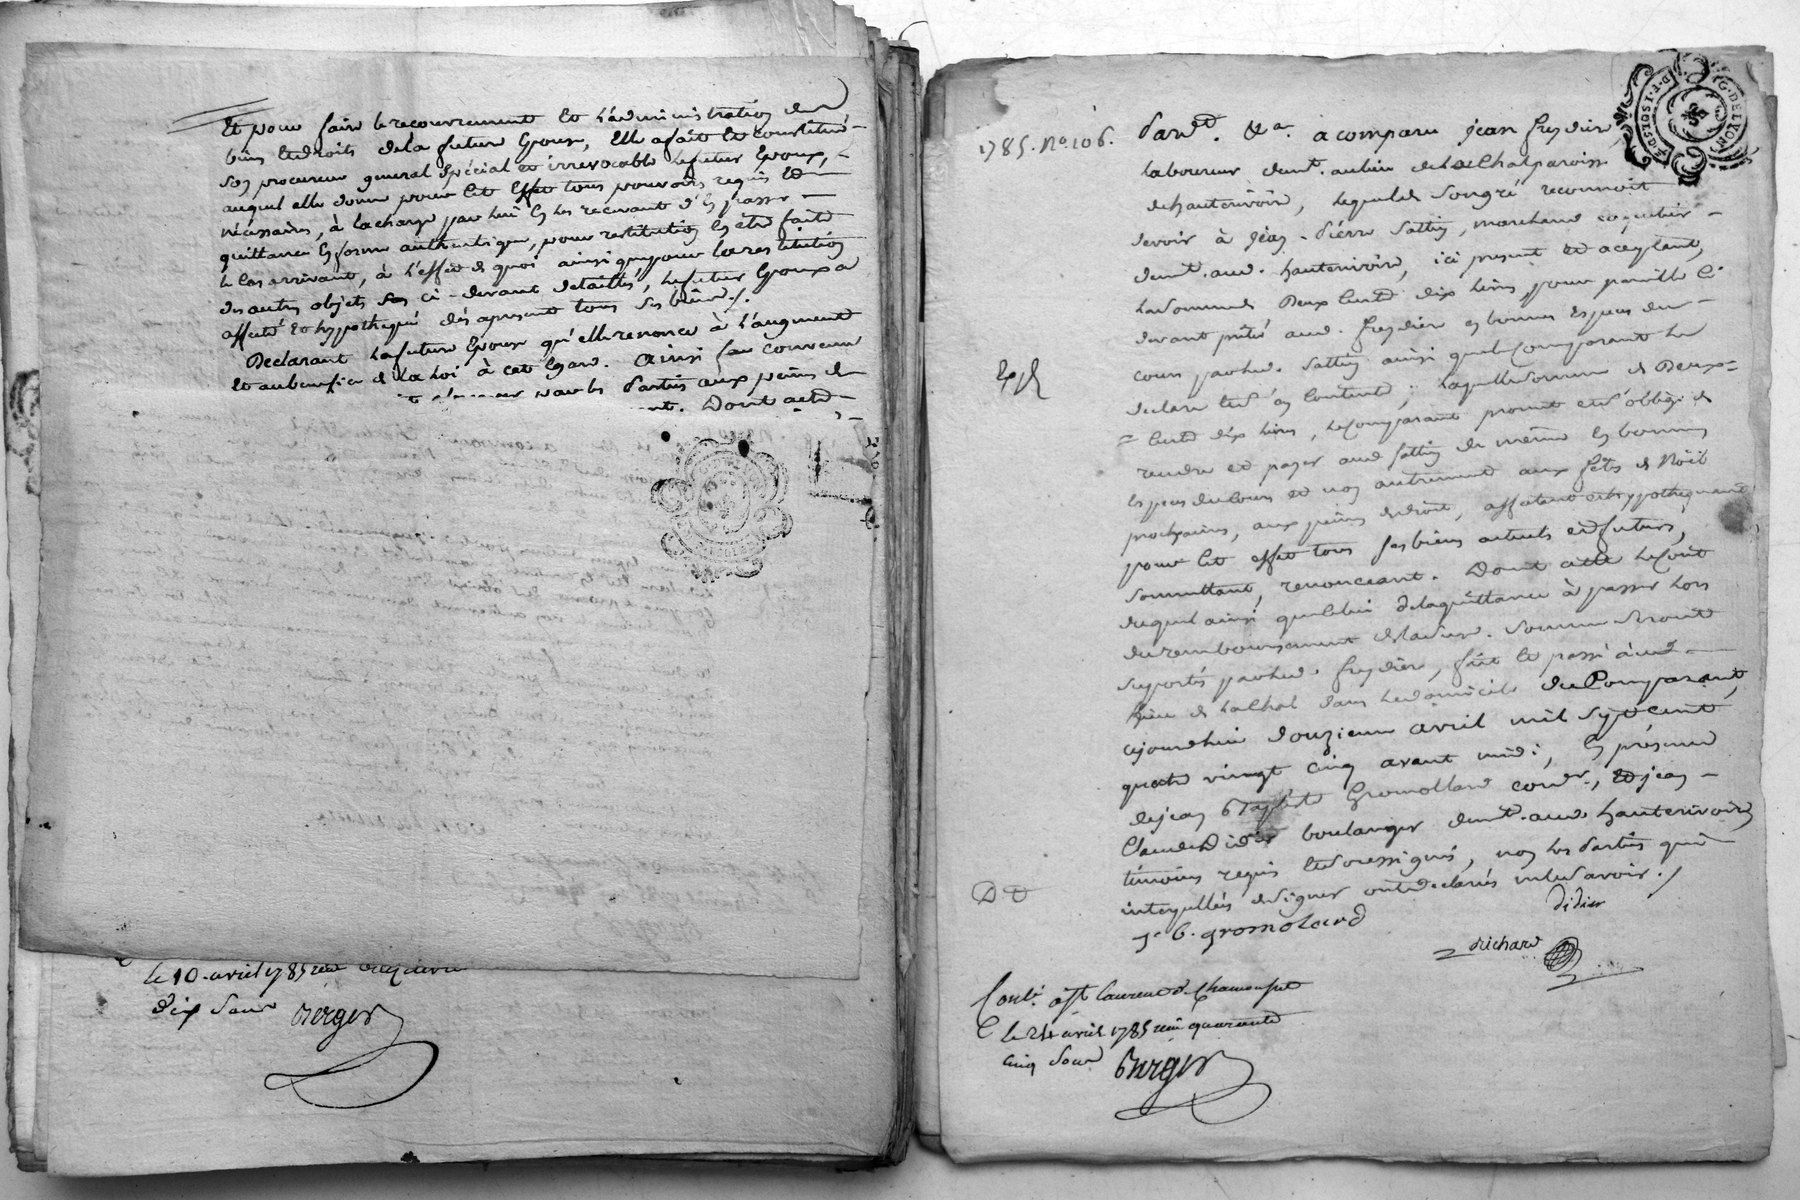 Et pour faire le recouvrement et l'administration des
biens et droits de la future Epouse, Elle a fait et constitué
son procureur general special et irrevocable le futur Epoux,
auquel elle donne pour cet Effet tous pouvoirs requis et
nécessaires, à la charge par lui En les recevant d'En passer
quittance En forme authentique, pour restitution En être faite
le Cas arrivant, à l'effet de quoi ainsi que pour la restitution
des autres objets ci-devant detaillés, le futur Epoux a
affecté et hyppothequé dès apresent tous ses biens ./.
Declarant la future Epouse qu'elle renonce à l'augment
et au benefice de la Loi à cet Egard. Ainsi convenu
par les Parties aux peines de
Dont acte
le 10 avril 1785 reçu
dix sous Berger
G. DE LYON
1785. No. 106.
Pardt. &a. a comparu jean freydier,
laboureur demt. au lieu de La Chal paroisse
de hauterivoire, lequel de son gré reconnoit
devoir à jean-Pierre Sattin, marchand coquetier
demt. aud. hauterivoire, ici present et acceptant,
la somme de Deux Cent dix livres pour pareille Ci
devant prêté aud. freydier en bonnes Especes du
cours par led. Sattin ainsi que le Comparant le
declare et s'en Contente; laquelle somme de Deux
= Cent dix livres, le comparant promet et s'oblige de
rendre et payer aud. Sattin de même En bonnes
Especes du Cours et non autrement aux fêtes de Noël
prochaines, aux peines de droit, affectant et hyppothequant
pour Cet effet tous ses biens actuels et futurs,
Soumettant, renonceant. Dont acte le Coût
duquel ainsi que celui de la quittance à passer lors
du remboursement de lad. Somme seront
suportés par led. freydier, fait et passé aud.
lieu de La Chal dans le domicile du Comparant,
ajourdhui douzieme avril mil sept cent
quatre vingt cinq avant midi, En presence
de jean Baptiste Gromollard cordr., et jean
Claude Didier boulanger demt. aud. hauterivoire,
témoins requis et soussignés, non les Parties qui
interpellées de signer ont declarés ne le savoir ./
Exp
j. B. gromolard
didier
Richard
Conlé. à St. Laurent de Chamousset
le 24 avril 1785 reçu quarante
cinq sous Berger